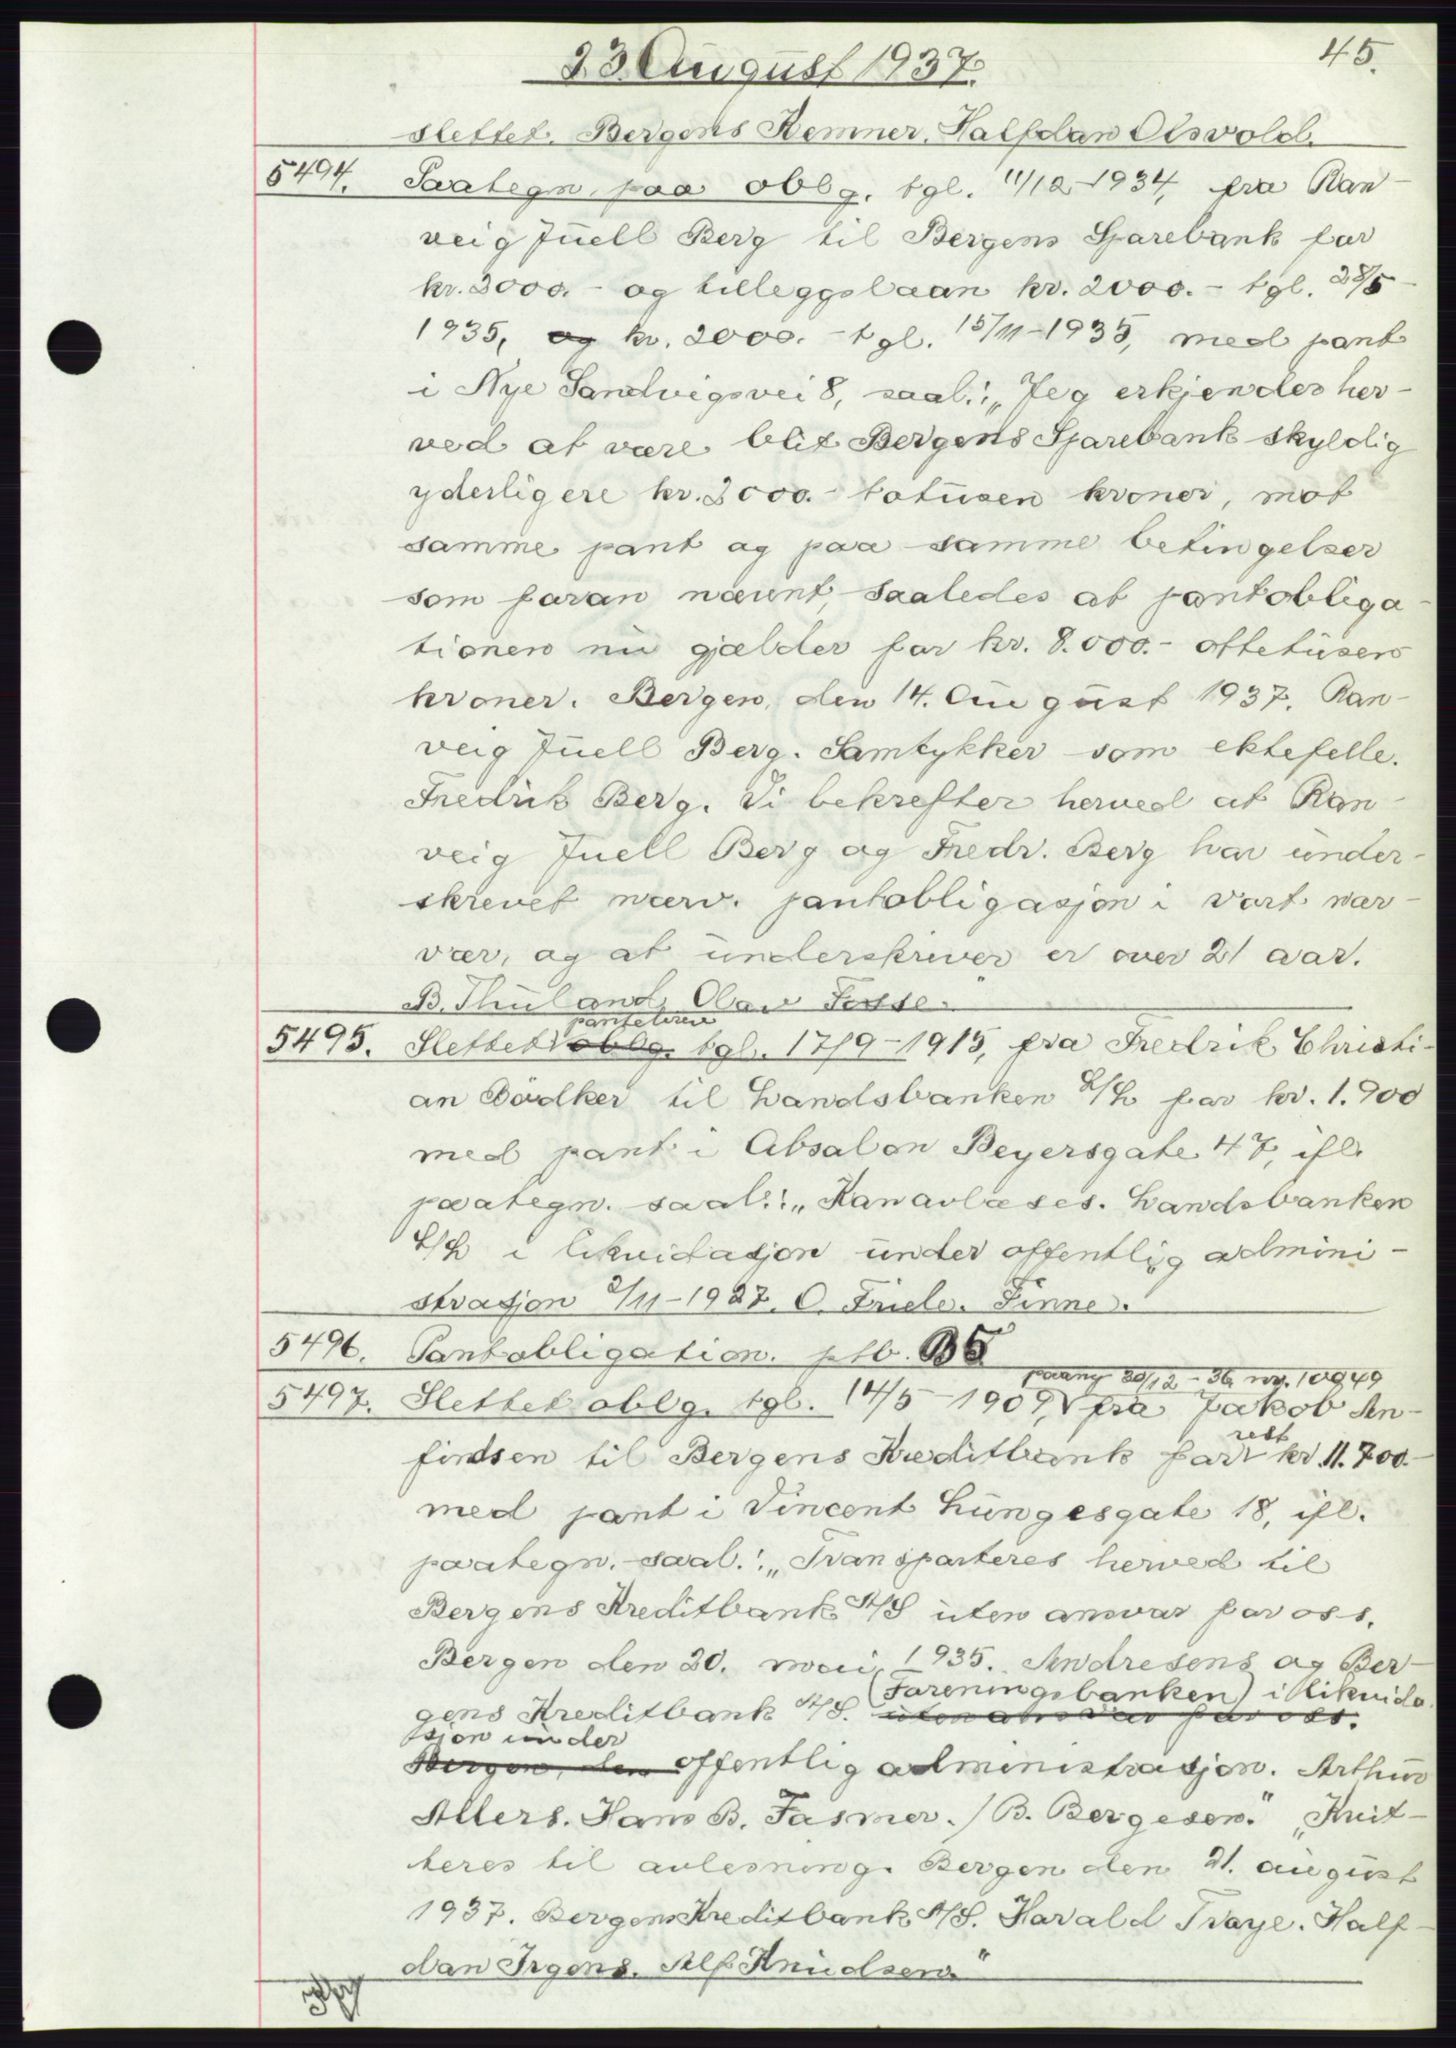 23 August 1937.
45.
slettet. Bergens Kemner. Halfdan Olsvold.
5494. Paategn. paa oblg. tgl. 11/12-1934, fra Ran-
veig Juell Berg til Bergens Sparebank for
kr. 2000.- og tilleggslaan kr. 2000.- tgl. 28/5-
1935, og kr. 2000.- tgl. 15/11-1935, med pant
i Nye Sandvigsvei 8, saal.: „Jeg erkjender her-
ved at være blit Bergens Sparebank skyldig
yderligere kr. 2000.- totusen kroner, mot
samme pant og paa samme betingelser
som foran nævnt, saaledes at pantobliga-
tionen nu gjælder for kr. 8.000.- ottetusen
kroner. Bergen, den 14. August 1937. Ran-
veig Juell Berg. Samtykker som ektefelle.
Fredrik Berg. Vi bekrefter herved at Ran-
veig Juell Berg og Fredr. Berg har under-
skrevet nærv. pantobligasjon i vort nær-
vær, og at underskriver er over 21 aar.
B. Thuland. Olav Fosse.
panteleven
5495. Slettet oblg. tgl. 17/9-1915, fra Fredrik Christi-
an Bødker til Landsbanken A/S for kr. 1.900
med pant i Absalon Beyersgate 47, ifl.
paategn. saal.: „Kan avlæses. Landsbanken
A/S i likvidasjon under offentlig admini-
strasjon 2/11-1927. O. Friele. Finne.
5496. Pantobligation. ptb. B5
paany 30/12-36 nr. 10949
5497. Slettet oblg. tgl. 14/5-1909, fra Jakob An-
rest
findsen til Bergens Kreditbank for kr. 11.700.-
med pant i Vincent Lungesgate 18, ifl.
paategn. saal.: „Transporteres herved til
Bergens Kreditbank A/S uten ansvar for oss.
Bergen den 20. mai 1935. Andresens og Ber-
(Foreningsbanken) i likvida-
gens Kreditbank A/S. uten ansvar for oss.
sjon under
Bergen, den offentlig administrasjon. Arthur
Allers. Hans B. Fasmer. / B. Bergesen." „Kvit-
teres til avlesning. Bergen den 21. august
1937. Bergens Kreditbank A/S. Harald Traye. Half-
dan Irgens. Alf Knudsen."